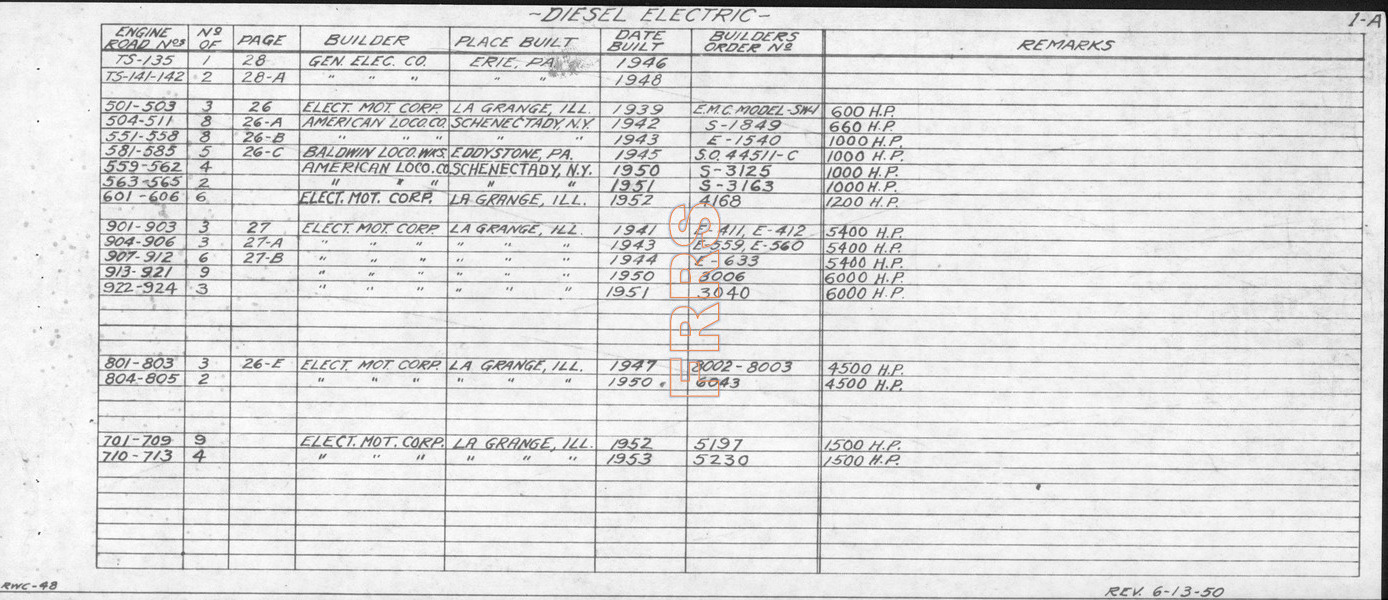 -DIESEL ELECTRIC-
1-A
ENGINE ROAD Nos Nº OF PAGE BUILDER PLACE BUILT DATE BUILT BUILDERS ORDER Nº REMARKS
TS-135 1 28 GEN. ELEC. CO. ERIE, PA. 1946
TS-141-142 2 28-A " " " " " 1948
501-503 3 26 ELECT. MOT. CORP. LA GRANGE, ILL. 1939 E.M.C. MODEL-SW1 600 H.P.
504-511 8 26-A AMERICAN LOCO.CO. SCHENECTADY, N.Y. 1942 S-1849 660 H.P.
551-558 8 26-B " " " " " 1943 E-1540 1000 H.P.
581-585 5 26-C BALDWIN LOCO.WKS. EDDYSTONE, PA. 1945 S.O. 44511-C 1000 H.P.
559-562 4 AMERICAN LOCO.CO. SCHENECTADY, N.Y. 1950 S-3125 1000 H.P.
563-565 2 " " " " " 1951 S-3163 1000 H.P.
601-606 6 ELECT. MOT. CORP. LA GRANGE, ILL. 1952 4168 1200 H.P.
901-903 3 27 ELECT. MOT. CORP. LA GRANGE, ILL. 1941 E-411, E-412 5400 H.P.
904-906 3 27-A " " " " " " 1943 E-559, E-560 5400 H.P.
907-912 6 27-B " " " " " " 1944 E-633 5400 H.P.
913-921 9 " " " " " " 1950 3006 6000 H.P.
922-924 3 " " " " " " 1951 3040 6000 H.P.
801-803 3 26-E ELECT. MOT. CORP. LA GRANGE, ILL. 1947 8002-8003 4500 H.P.
804-805 2 " " " " " " 1950 6043 4500 H.P.
701-709 9 ELECT. MOT. CORP. LA GRANGE, ILL. 1952 5197 1500 H.P.
710-713 4 " " " " " " 1953 5230 1500 H.P.
RWC-48
REV. 6-13-50